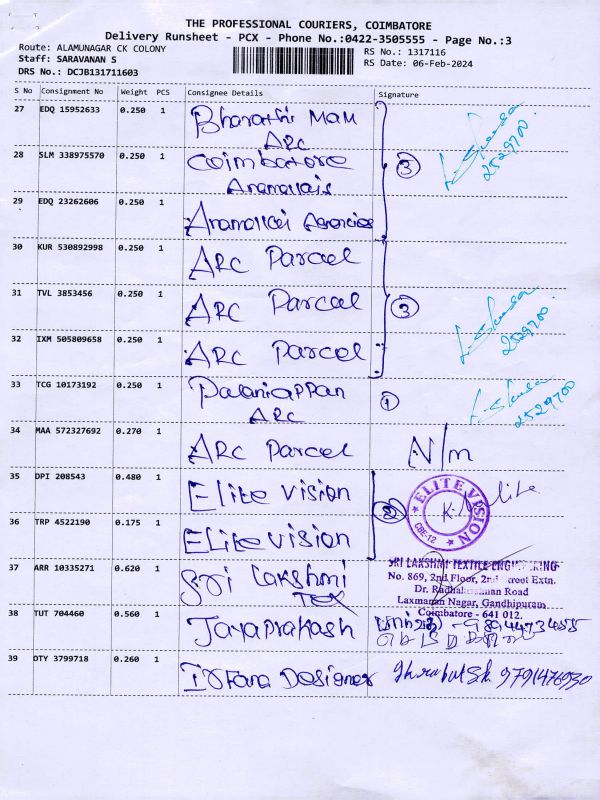 THE PROFESSIONAL COURIERS, COIMBATORE
Delivery Runsheet - PCX - Phone No.:0422-3505555 - Page No.:3
Route: ALAMUNAGAR CK COLONY
RS No.: 1317116
Staff: SARAVANAN S
RS Date: 06-Feb-2024
DRS No.: DCJB131711603
S No Consignment No Weight PCS Consignee Details Signature
27 EDQ 15952633 0.250 1 Bharathi Mam
ARC
2529700
28 SLM 338975570 0.250 1 Coimbatore 3
Anamallais
29 EDQ 23262606 0.250 1 Anamallai Agencies
30 KUR 530892998 0.250 1 ARC Parcel
31 TVL 3853456 0.250 1 ARC Parcel 3
2529700
32 IXM 505809658 0.250 1 ARC Parcel
33 TCG 10173192 0.250 1 Palaniappan 1
ARC
2529700
34 MAA 572327692 0.270 1 ARC Parcel N/m
35 DPI 208543 0.480 1 Elite Vision
ELITE VISION
CBE-12
2
36 TRP 4522190 0.175 1 Elite Vision
37 ARR 10335271 0.620 1 Sri Lakshmi
Tex
SRI LAKSHMI TEXTILE ENGINEERING
No. 869, 2nd Floor, 2nd Street Extn.
Dr. Radhakrishnan Road
Laxmanan Nagar, Gandhipuram
Coimbatore - 641 012.
38 TUT 704460 0.560 1 Jayaprakash
39 DTY 3799718 0.260 1 Irfana Designer 9791476930